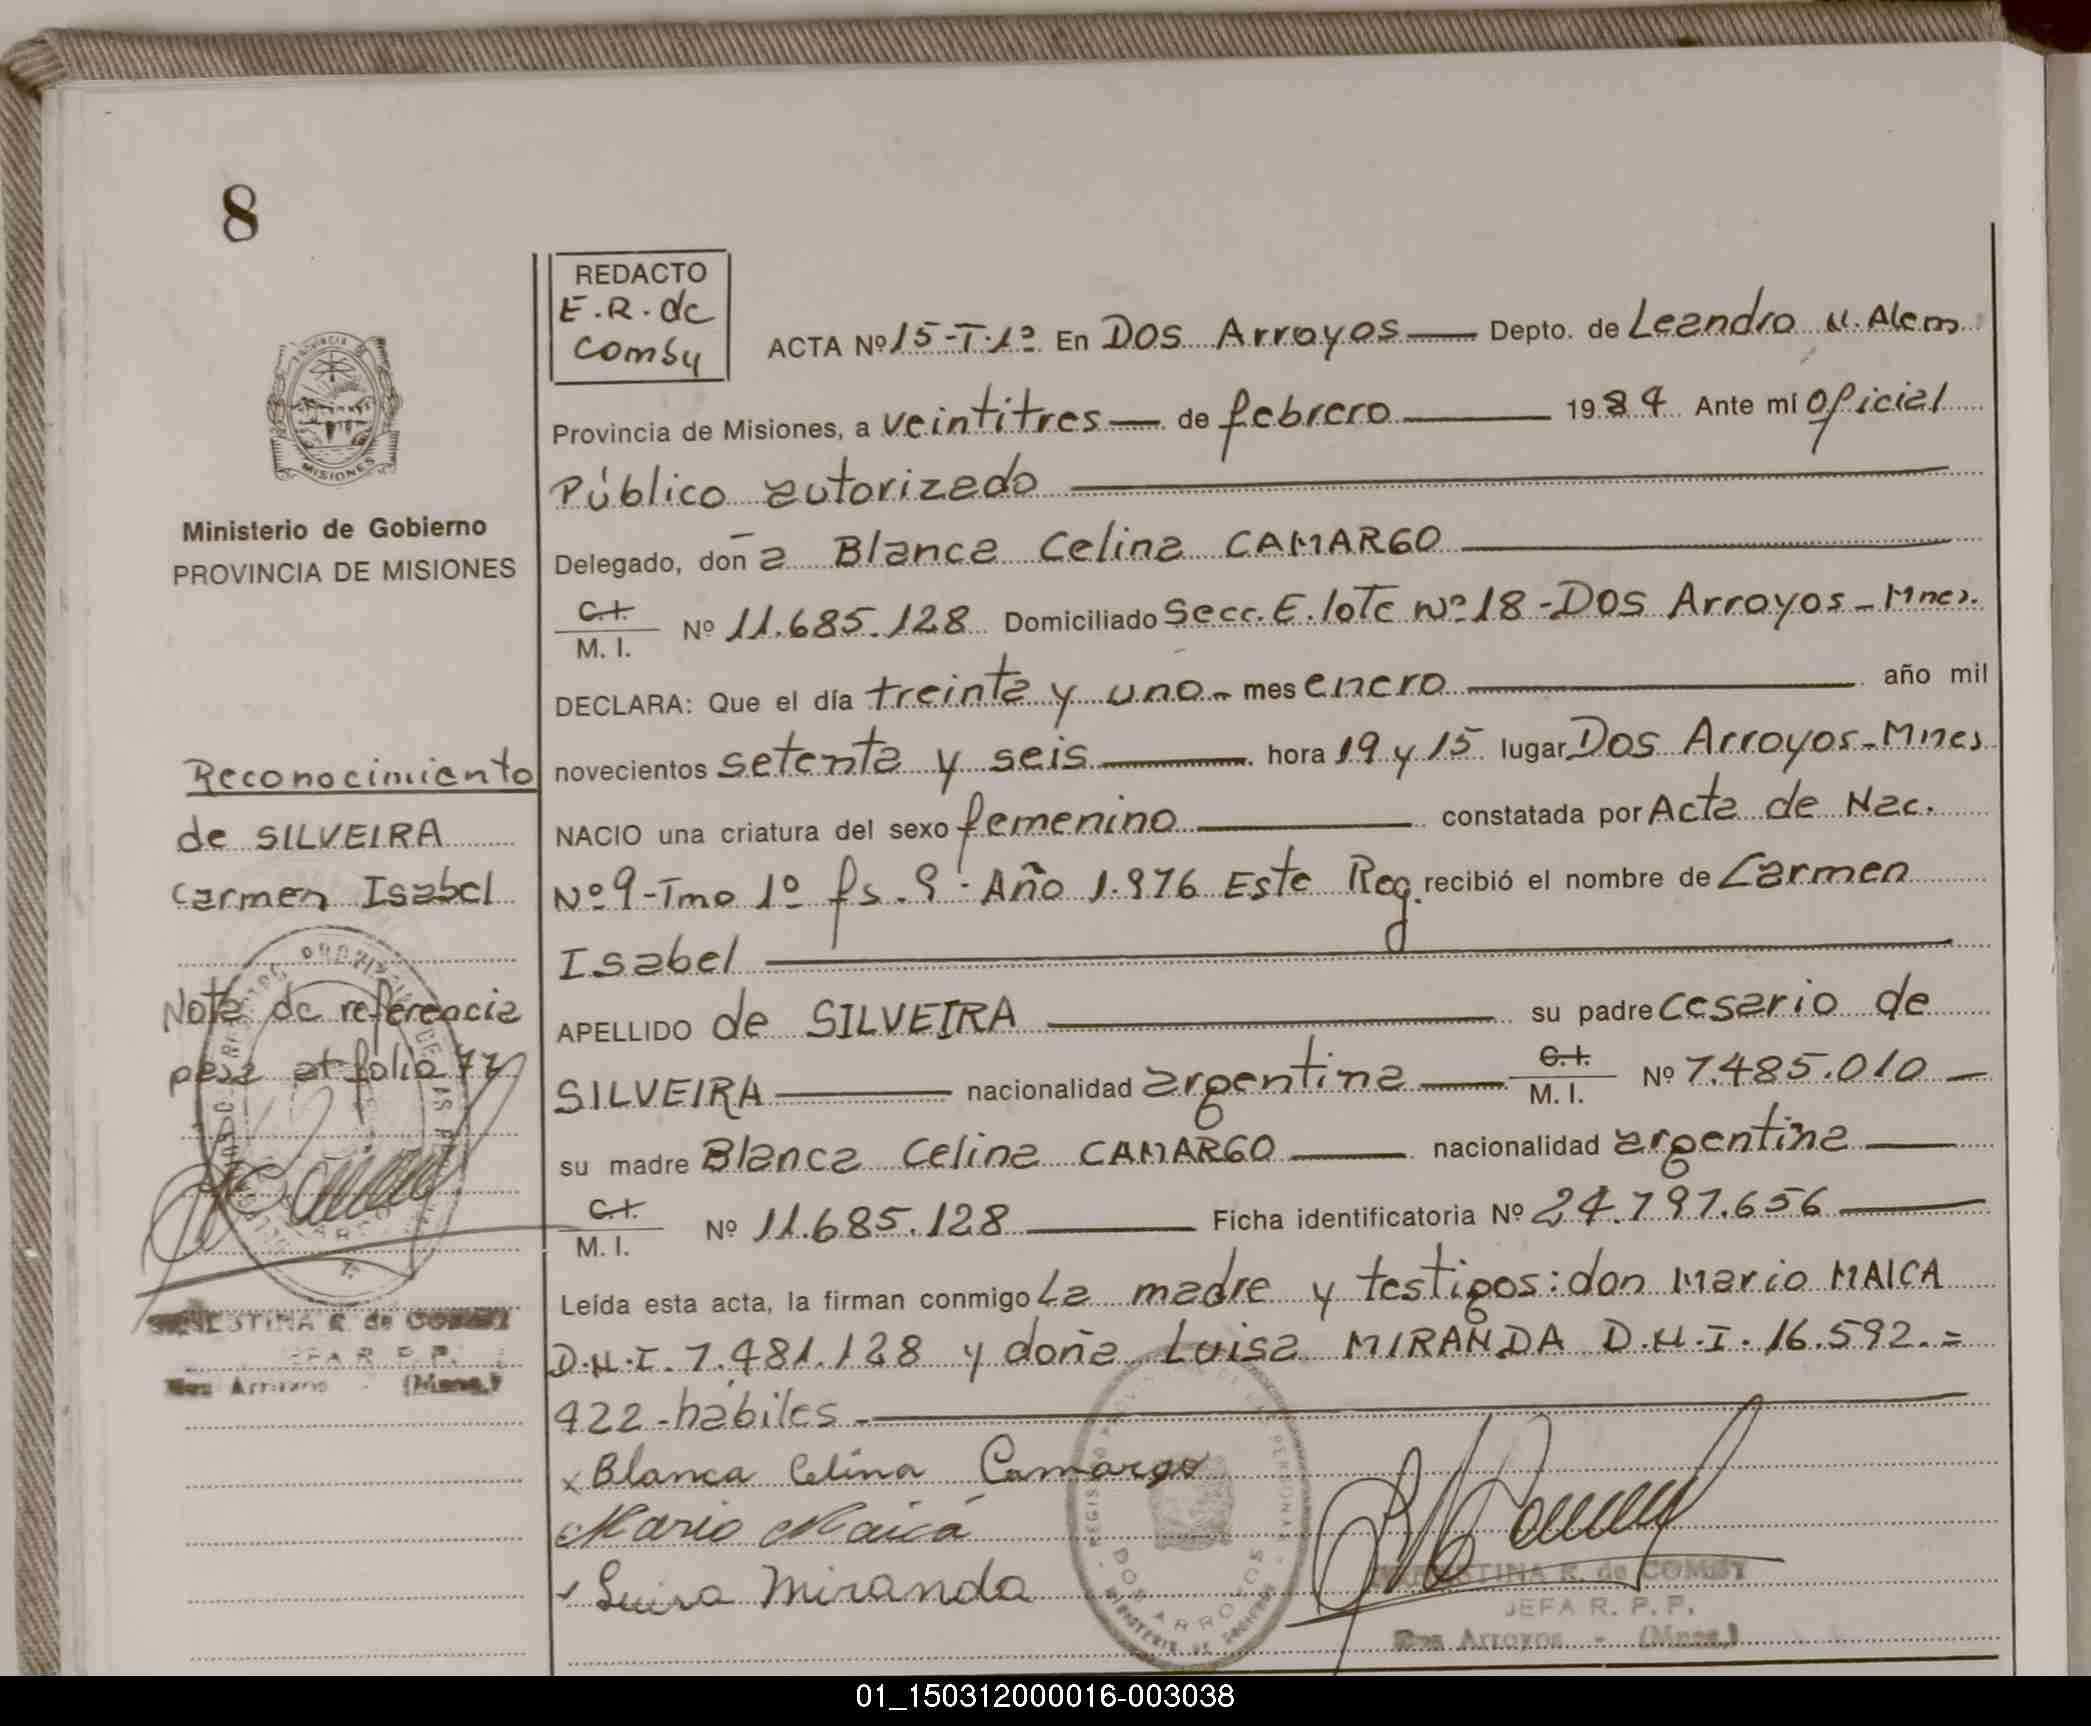 8
REDACTO
E.R. de
Comby
ACTA Nº 15-T.1º En Dos Arroyos Depto. de Leandro N. Alem
Provincia de Misiones, a veintitres de febrero 1984 Ante mí Oficial
Público autorizado
Delegado, doña Blanca Celina CAMARGO
C.I. M.I. Nº 11.685.128 Domiciliado Secc. E. lote Nº 18 - Dos Arroyos - Mnes.
DECLARA: Que el día treinta y uno - mes enero año mil
novecientos setenta y seis hora 19 y 15 lugar Dos Arroyos - Mnes
NACIO una criatura del sexo femenino constatada por Acta de Nac.
Nº 9 - Tmo 1º fs. 9 - Año 1.976 Este Reg. recibió el nombre de Carmen
Isabel
APELLIDO de SILVEIRA su padre Cesario de
SILVEIRA nacionalidad argentina C.I. M.I. Nº 7.485.010
su madre Blanca Celina CAMARGO nacionalidad argentina
C.I. M.I. Nº 11.685.128 Ficha identificatoria Nº 24.797.656
Leída esta acta, la firman conmigo La madre y testigos: don Mario MAICA
D.N.I. 7.481.128 y doña Luisa MIRANDA D.N.I. 16.592.=
422 - hábiles -
x Blanca Celina Camargo
Mario Maicá
Luisa Miranda
ERNESTINA R. de COMBY
JEFA R. P. P.
Dos Arroyos - (Mnes.)
DOS ARROYOS
MISIONES
Ministerio de Gobierno
PROVINCIA DE MISIONES
Reconocimiento
de SILVEIRA
Carmen Isabel
Nota de referencia
pasa al folio 77
ERNESTINA R. de COMBY
JEFA R. P. P.
Dos Arroyos - (Mnes.)
01_150312000016-003038